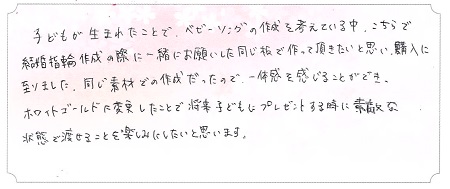 子どもが生まれたことで、ベビーリングの作成を考えている中、こちらで
結婚指輪作成の際に一緒にお願いした同じ板で作って頂きたいと思い、購入に
至りました。同じ素材での作成だったので、一体感を感じることができ、
ホワイトゴールドに変更したことで将来子どもにプレゼントする時に素敵な
状態で渡せることを楽しみにしたいと思います。